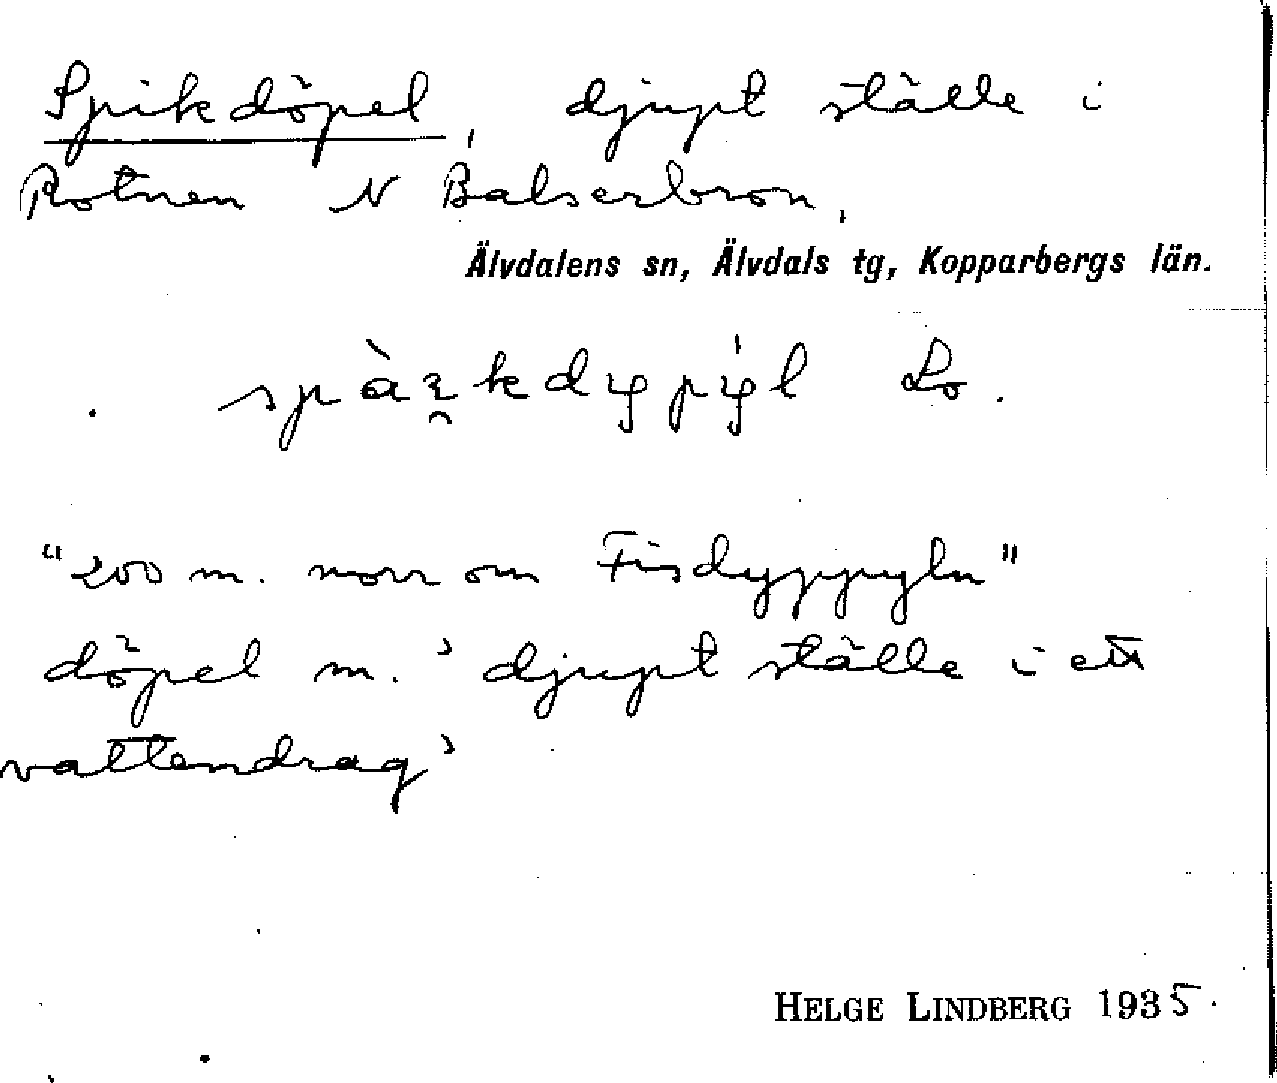 Spikdöpel, djupt ställe i
Rotnen N Balserbron,
Älvdalens sn, Älvdals tg, Kopparbergs län.
Lo.
"200 m. norr om Fisdyppyln"
döpel m. 'djupt ställe i ett
vattendrag'
HELGE LINDBERG 1935.